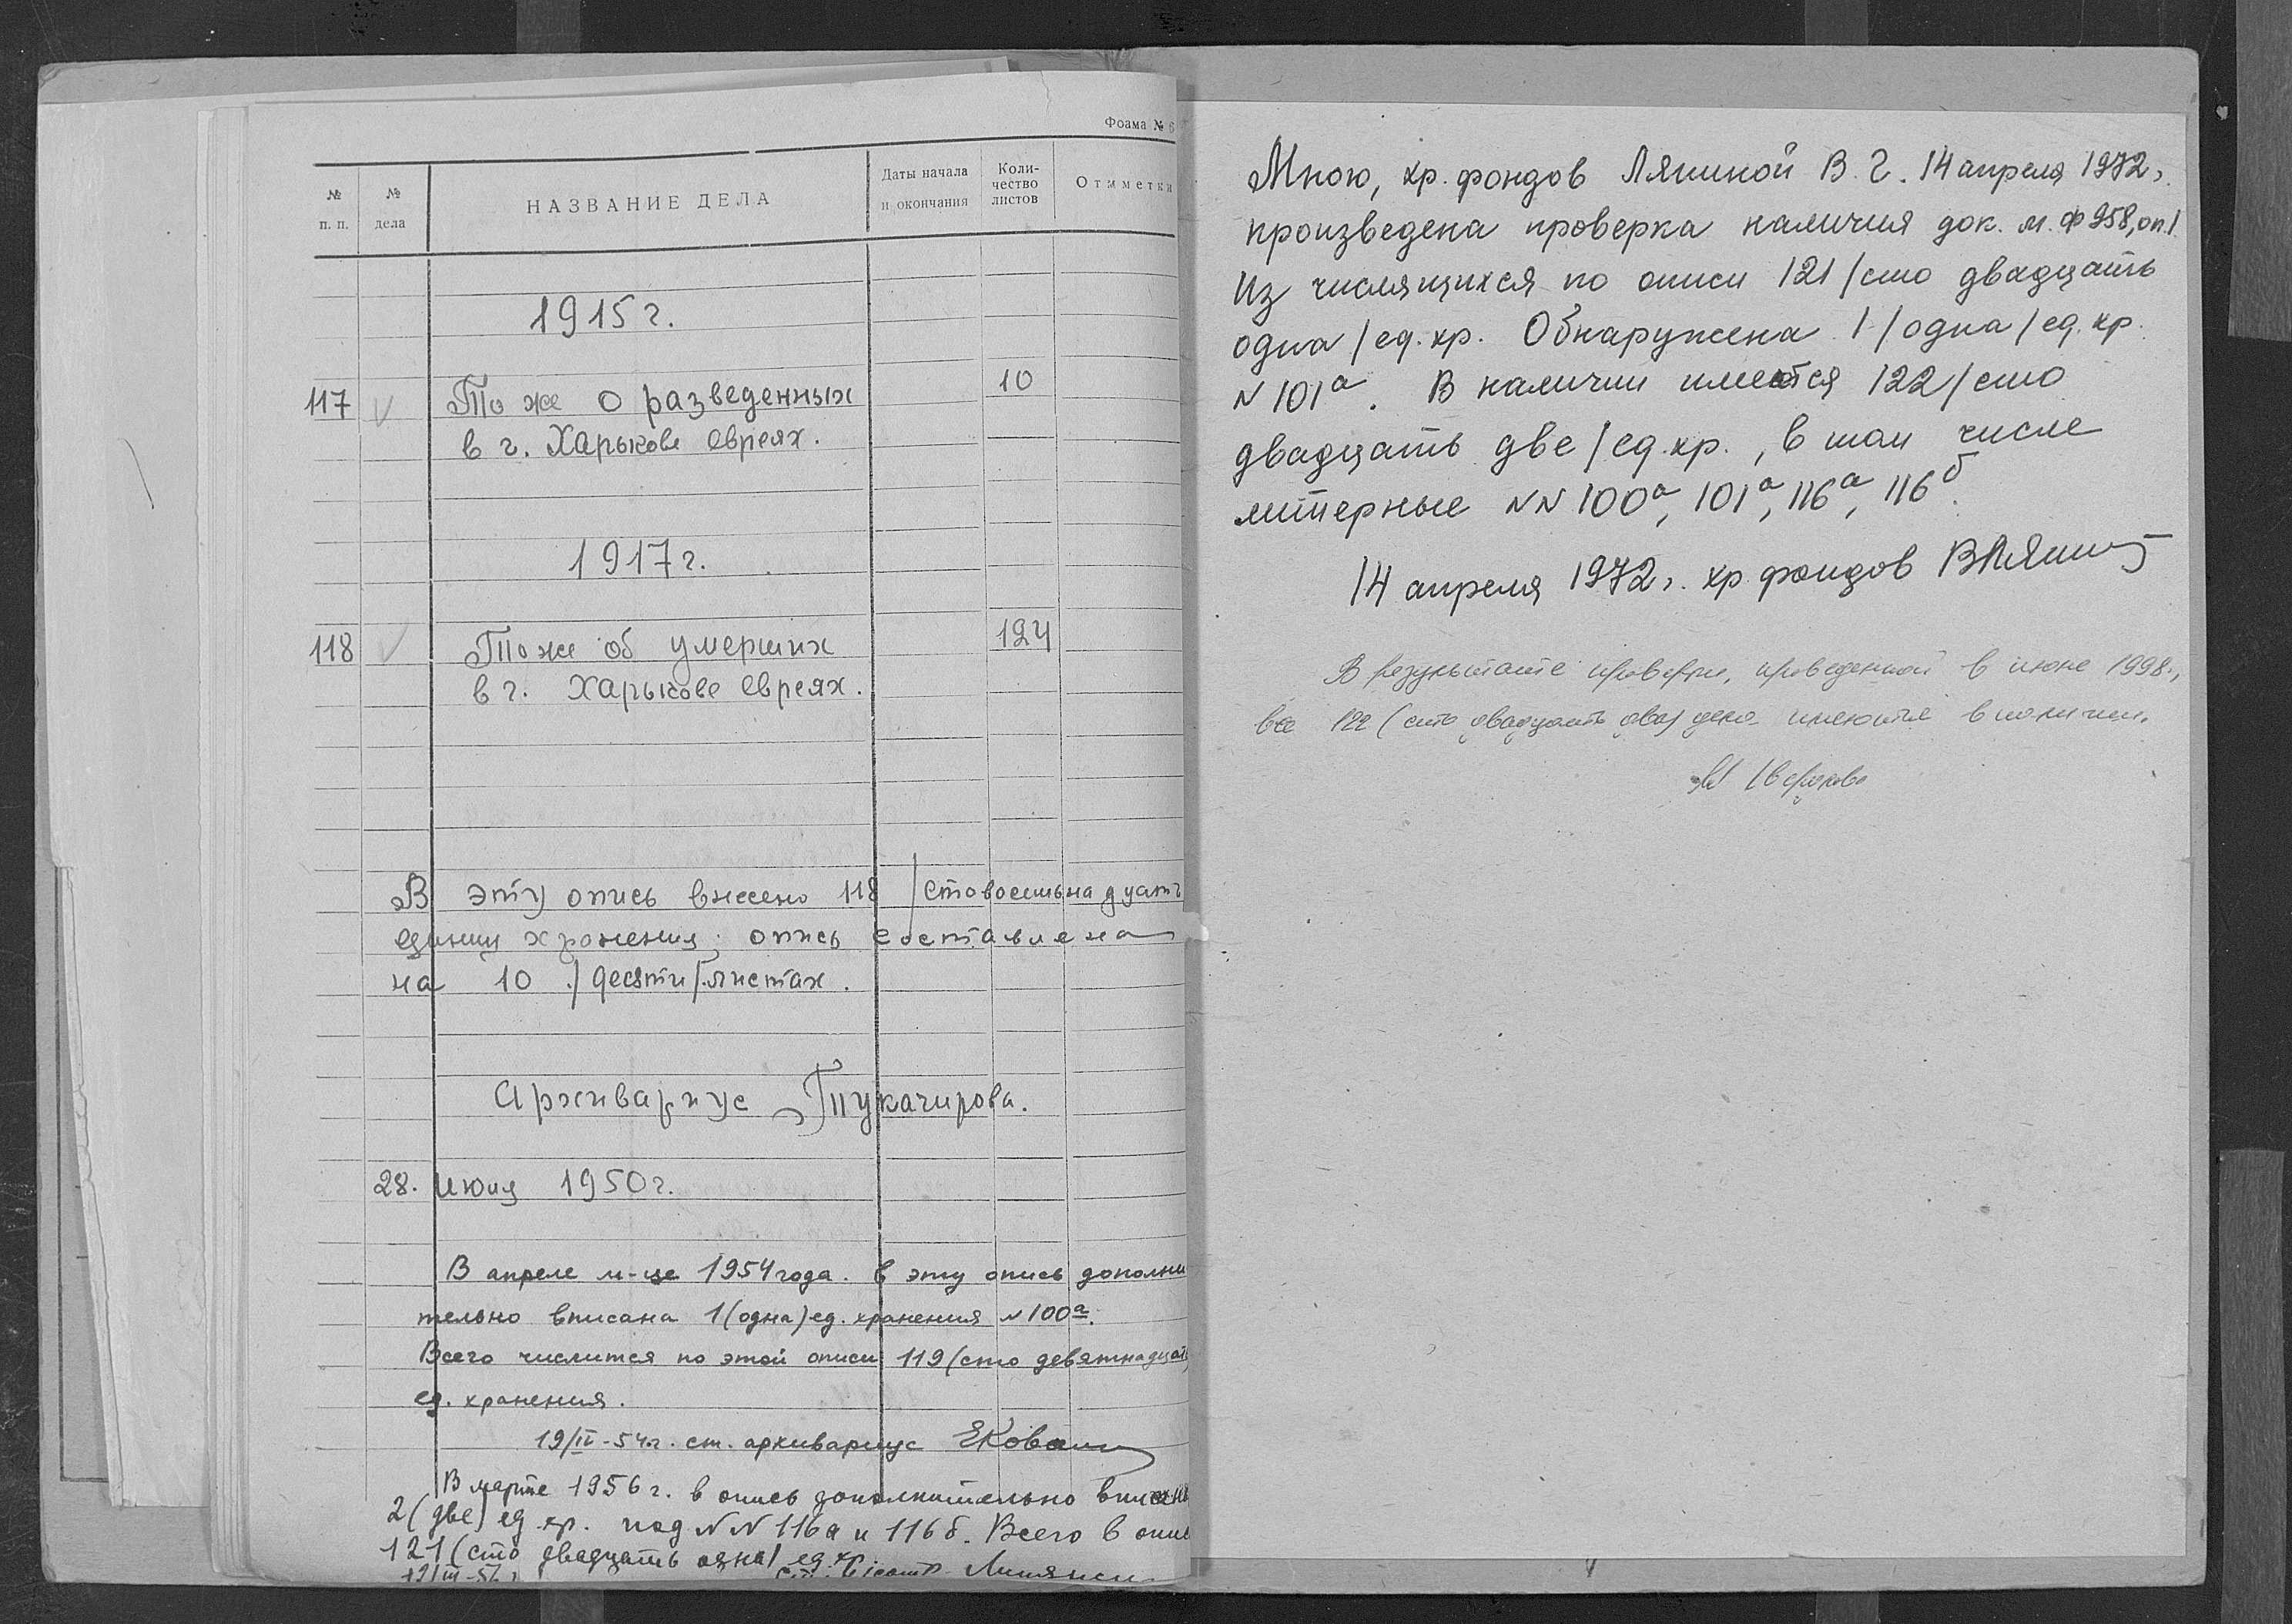 Фоама № 6
№ п. п.
№ дела
НАЗВАНИЕ ДЕЛА
Даты начала и окончания
Коли-
чество
листов
Отмметки
1915 г.
117 То же о разведенных 10
в г. Харькове евреях.
1917 г.
118 То же об умерших 124
в г. Харькове евреях.
В эту опись внесено 118 /стовосемьнадцать
единиц хранения; опись составлена
на 10 /десяти/ листах.
Архивариус Тукачирова.
28. июня 1950 г.
В апреле м-це 1954 года. в эту опись дополни
тельно вписана 1 (одна) ед. хранения N 100а.
Всего числится по этой описи 119 (сто девятнадцать)
ед. хранения.
19/IV-54 г. ст. архивариус ЕКовали
В марте 1956 г. в опись дополнительно вписаны
2 (две) ед. хр. под NN 116а и 116б. Всего в опи
121 (сто двадцать одна) ед. хр.
Мною, хр. фондов Ляшиной В. Г. 14 апреля 1972 г.
произведена проверка наличия док. м. ф 958, оп. 1.
Из числящихся по описи 121 /сто двадцать
одна/ ед. хр. Обнаружена 1 /одна/ ед. хр.
N 101а. В наличии имеются 122 /сто
двадцать две/ ед. хр., в том числе
литерные NN 100а, 101а, 116а, 116б.
14 апреля 1972 г. хр. фондов
В результате проверки, проведенной в июне 1998 г.,
все 122 (сто двадцать два) дела имеются в наличии.